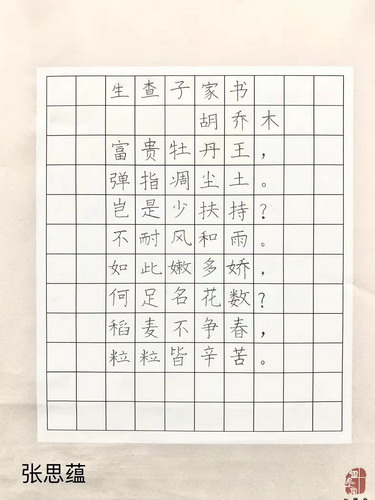 生查子家书
胡乔木
富贵牡丹王，
弹指凋尘土。
岂是少扶持？
不耐风和雨。
如此嫩多娇，
何足名花数？
稻麦不争春，
粒粒皆辛苦。
张思蕴